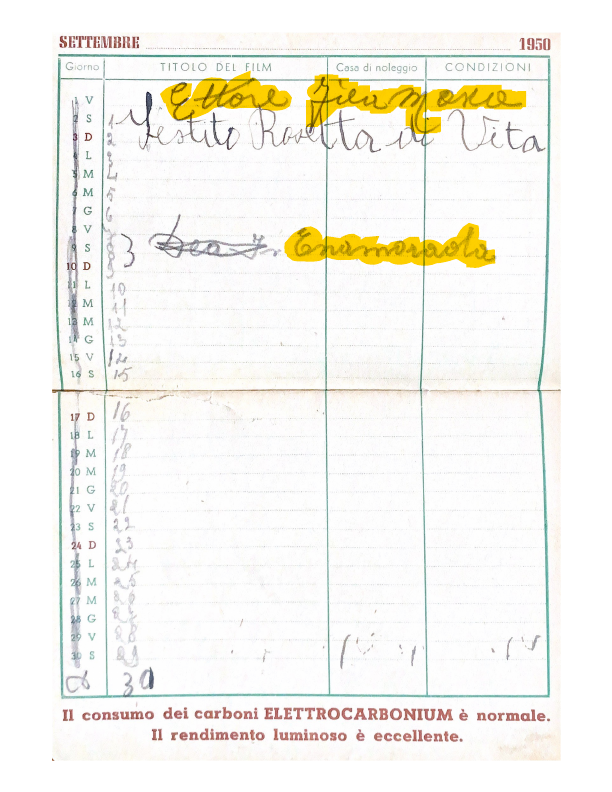 SETTEMBRE 1950
Giorno TITOLO DEL FILM Casa di noleggio CONDIZIONI
Ettore Fieramosca
1 V
2 S 1 Vestito Rosetta di Vita
3 D 2
4 L 3
5 M 4
6 M 5
7 G 6
8 V 7
9 S 8 3 Enamorada
10 D 9
11 L 10
12 M 11
13 M 12
14 G 13
15 V 14
16 S 15
17 D 16
18 L 17
19 M 18
20 M 19
21 G 20
22 V 21
23 S 22
24 D 23
25 L 24
26 M 25
27 M 26
28 G 27
29 V 28
30 S 29
30
Il consumo dei carboni ELETTROCARBONIUM è normale.
Il rendimento luminoso è eccellente.